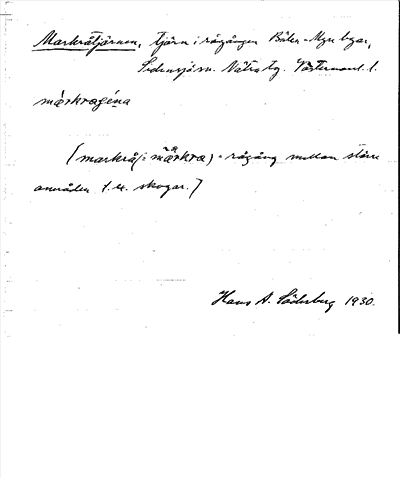 Markråtjärnen, tjärn i rågången Bölen-Myre byar,
Sidensjö sn. Nätra tg. Västernorrl. l.
markragę́na
(markrå (i märkra) = rågång mellan större
områden t.ex. skogar.)
Hans A. Söderberg 1930.